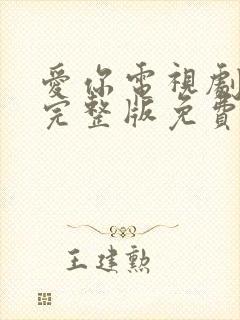 愛你電視劇
完整版免費
王建勲